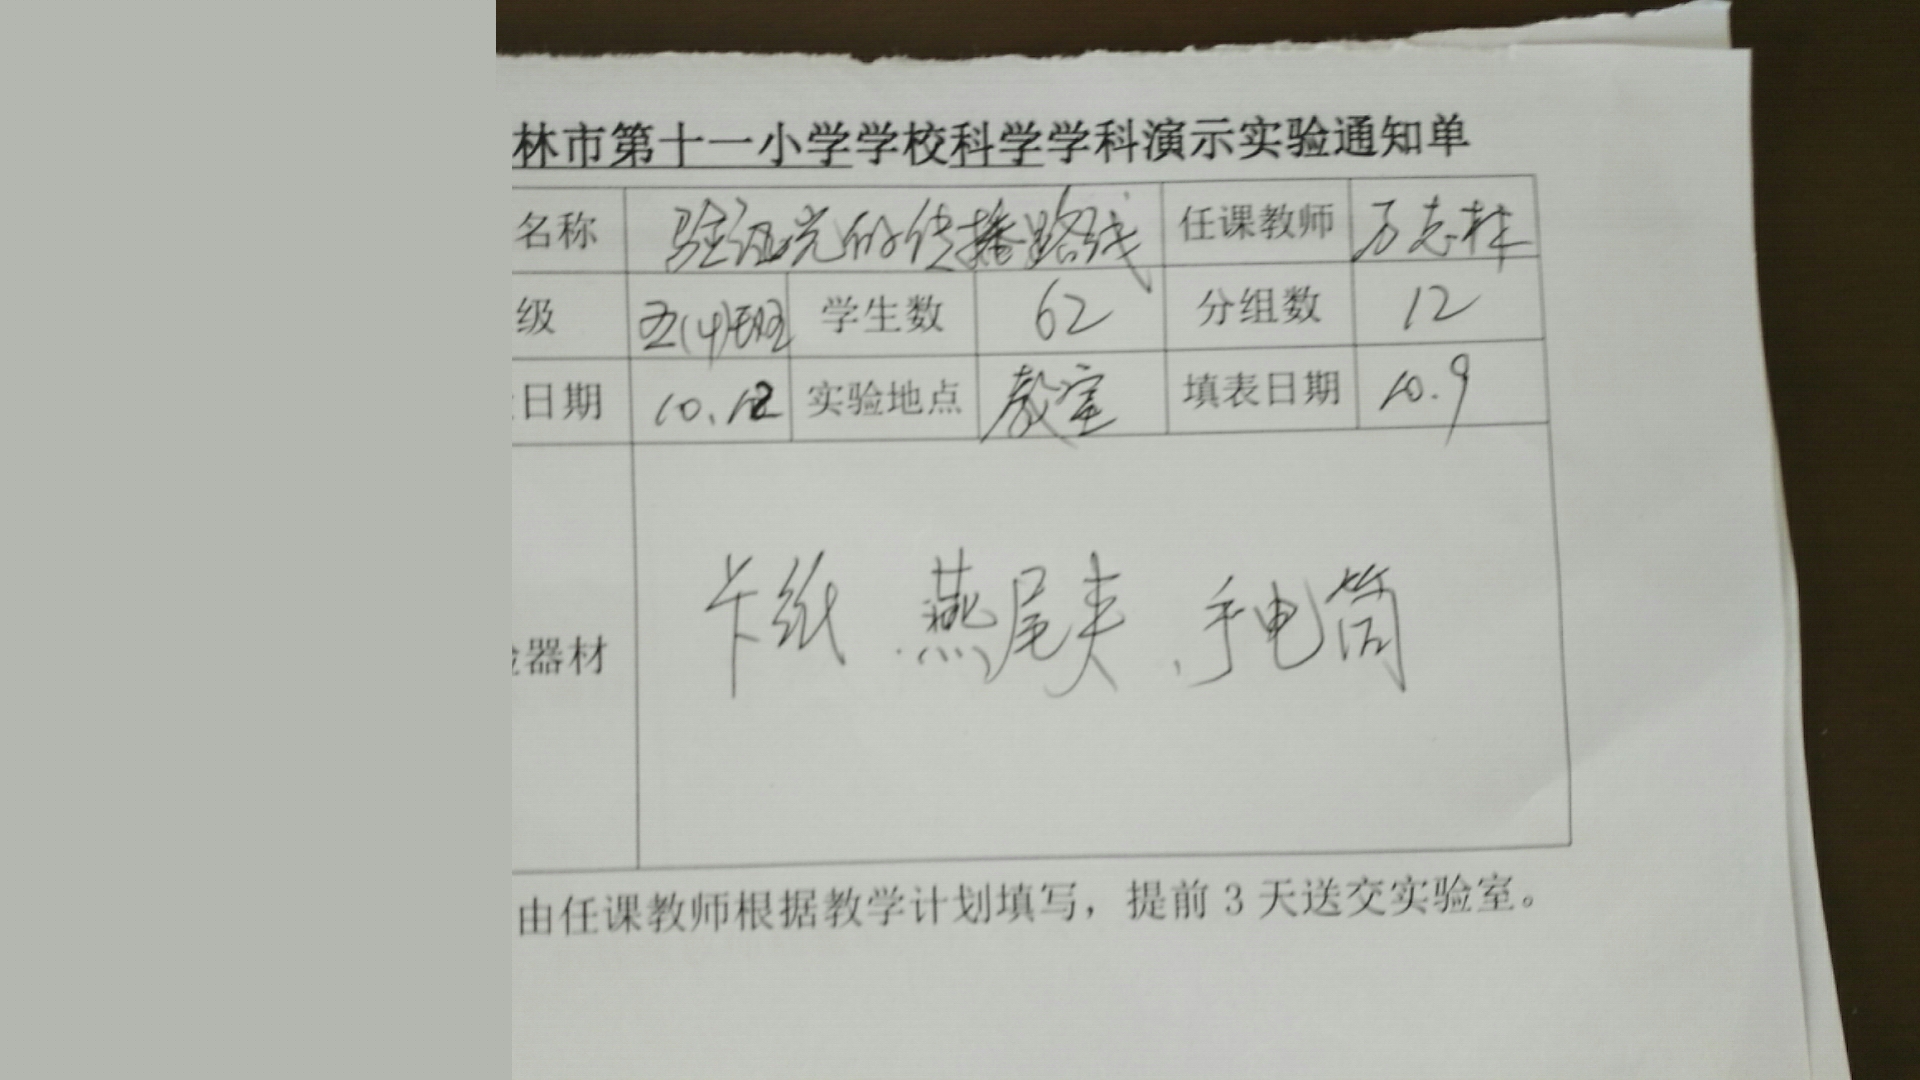 林市第十一小学学校科学学科演示实验通知单
名称 验证光的传播路线 任课教师 万志林
级 五(4)班 学生数 62 分组数 12
日期 10.12 实验地点 教室 填表日期 10.9
器材 卡纸、燕尾夹、手电筒
由任课教师根据教学计划填写，提前3天送交实验室。